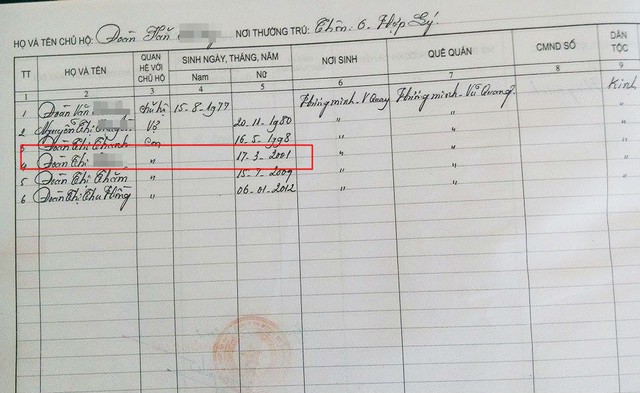 HỌ VÀ TÊN CHỦ HỘ: Đoàn Văn NƠI THƯỜNG TRÚ: Thôn 6. Hợp Lý.
TT HỌ VÀ TÊN QUAN HỆ VỚI CHỦ HỘ SINH NGÀY, THÁNG, NĂM NƠI SINH QUÊ QUÁN CMND SỐ DÂN TỘC
Nam Nữ
1 2 3 4 5 6 7 8 9
1 Đoàn Văn chủ hộ 15-8-1977 Hương minh-V Quang Hương minh-Vũ Quang Kinh
2 Nguyễn Thị Vợ 20-11-1980 " " "
3 Đoàn Thị Thanh Con 16-5-1998 " " "
4 Đoàn Thị " 17-3-2001 " "
5 Đoàn Thị Thắm " 15-7-2009 " "
6 Đoàn Thị Thu Hồng " 06-01-2012 " "